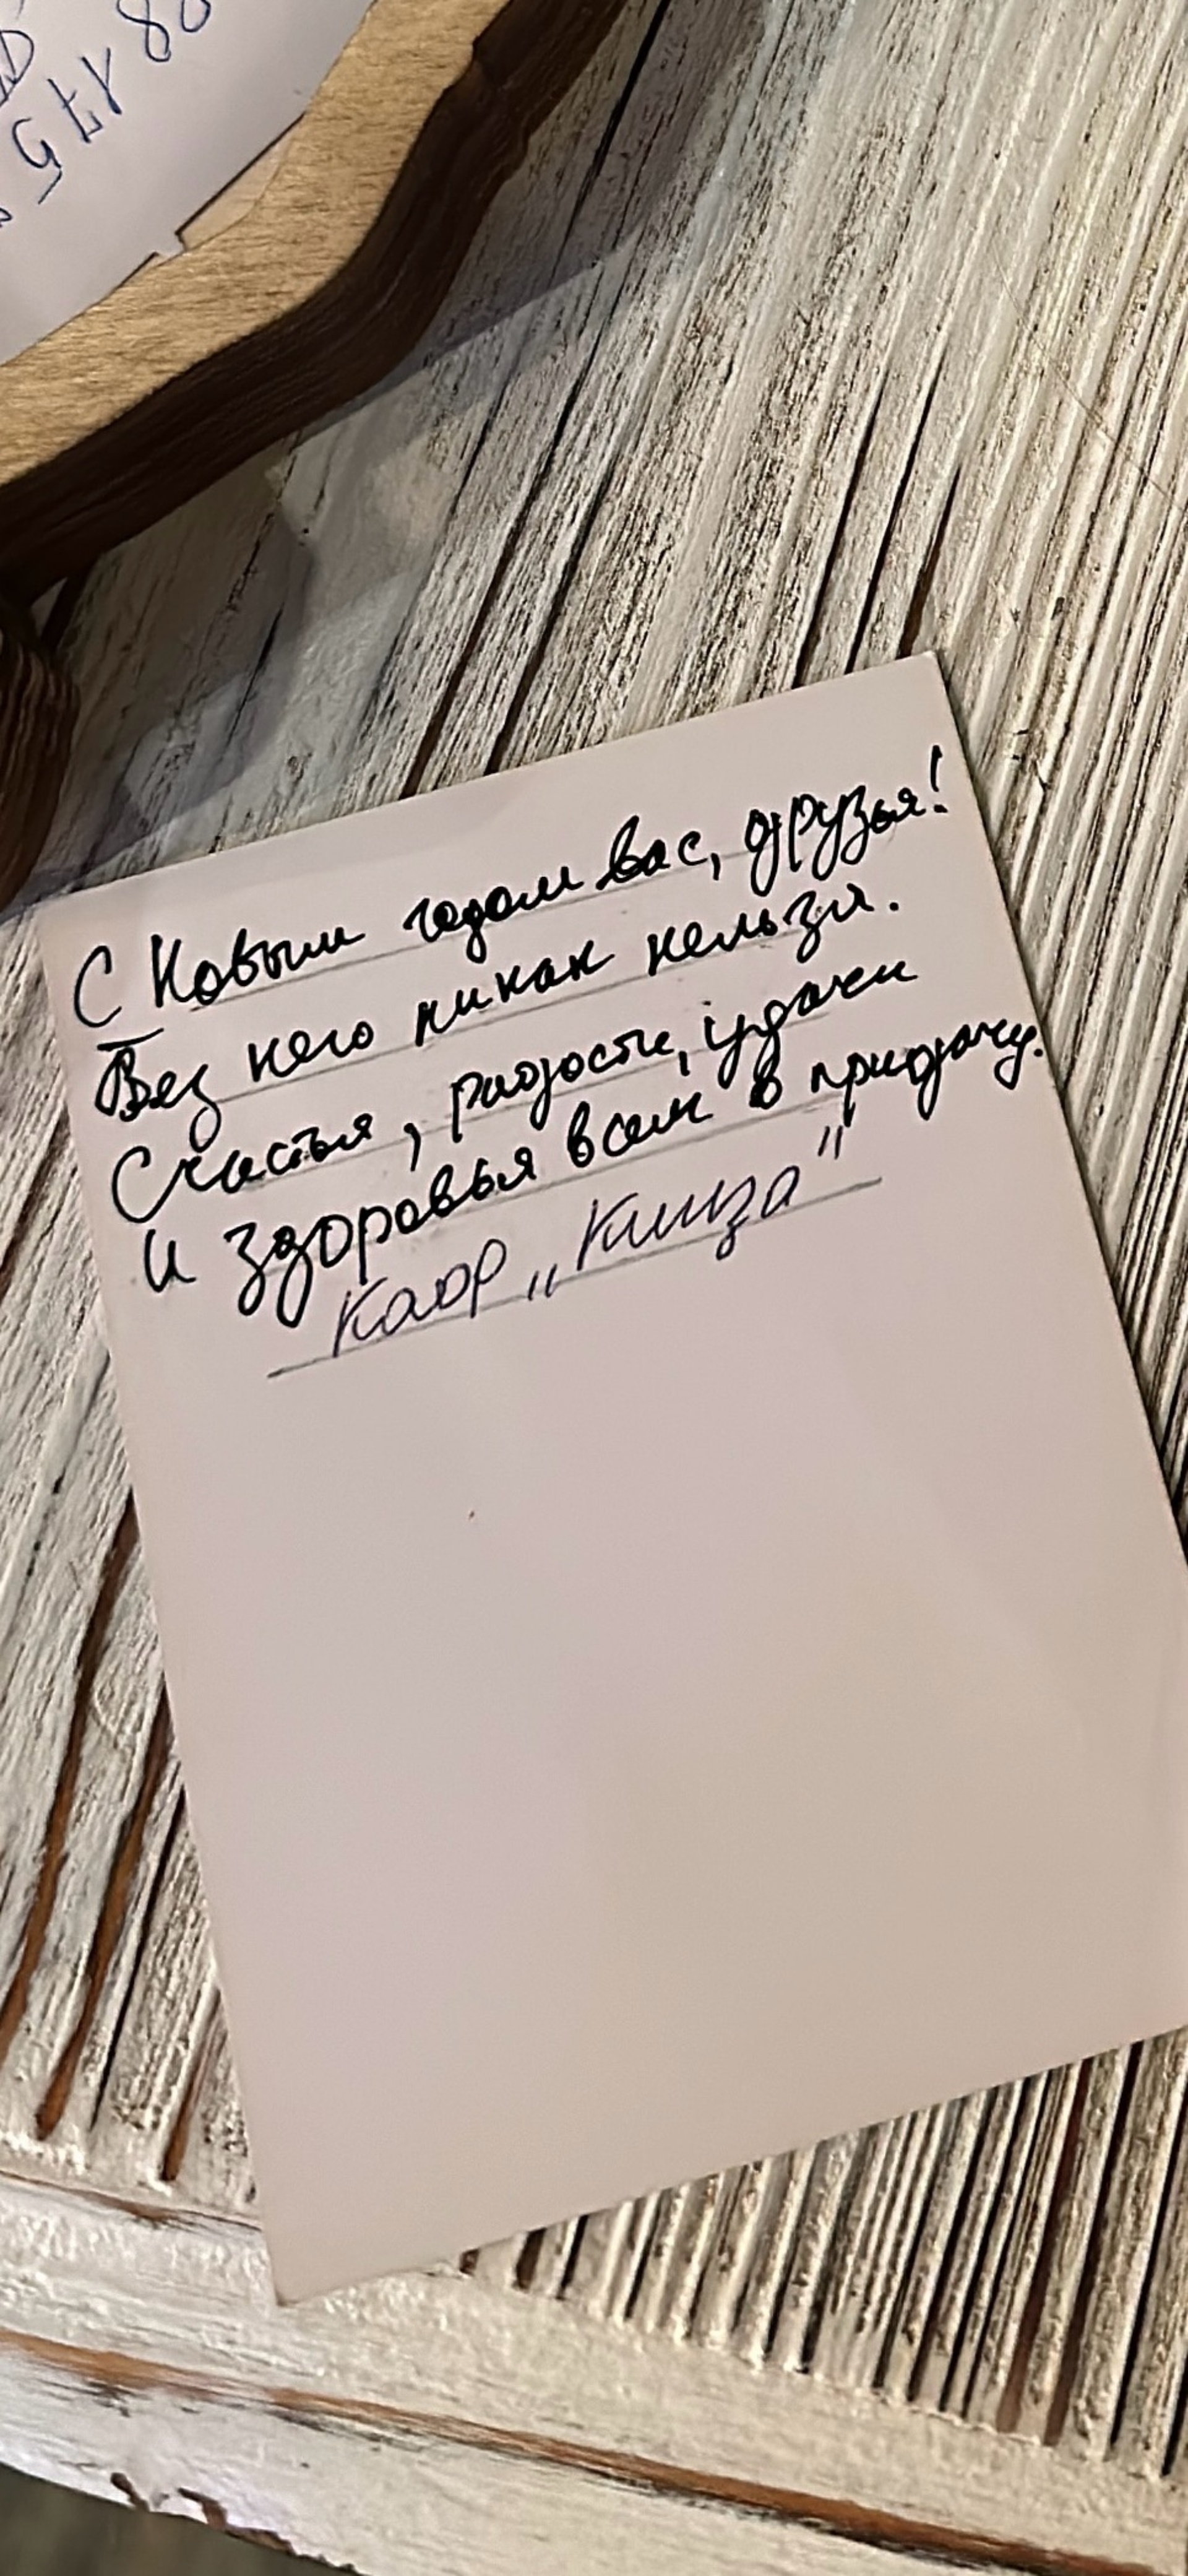 С Новым годом вас, друзья!
Без него никак нельзя.
Счастья, радости, удачи
и здоровья всем в придачу.
"Кинза"